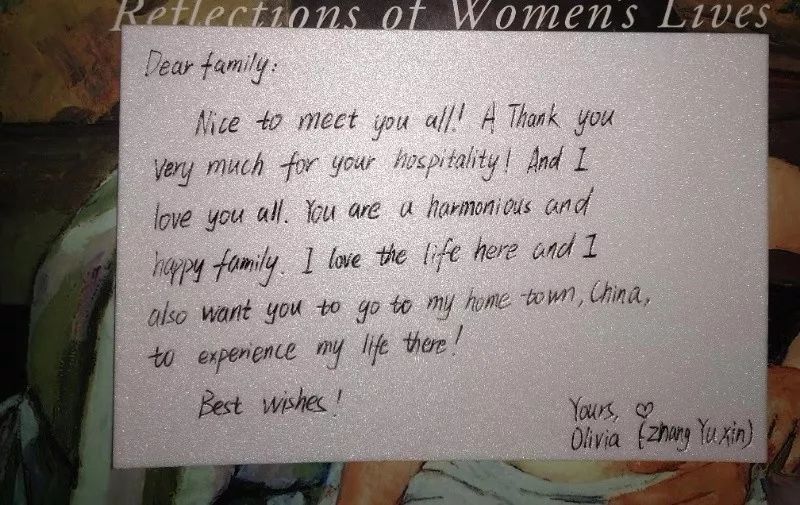 Reflections of Women's Lives
Dear family:
Nice to meet you all! A Thank you
very much for your hospitality! And I
love you all. You are a harmonious and
happy family. I love the life here and I
also want you to go to my home town, China,
to experience my life there!
Best wishes!
Yours, ♡
Olivia (zhang Yu xin)